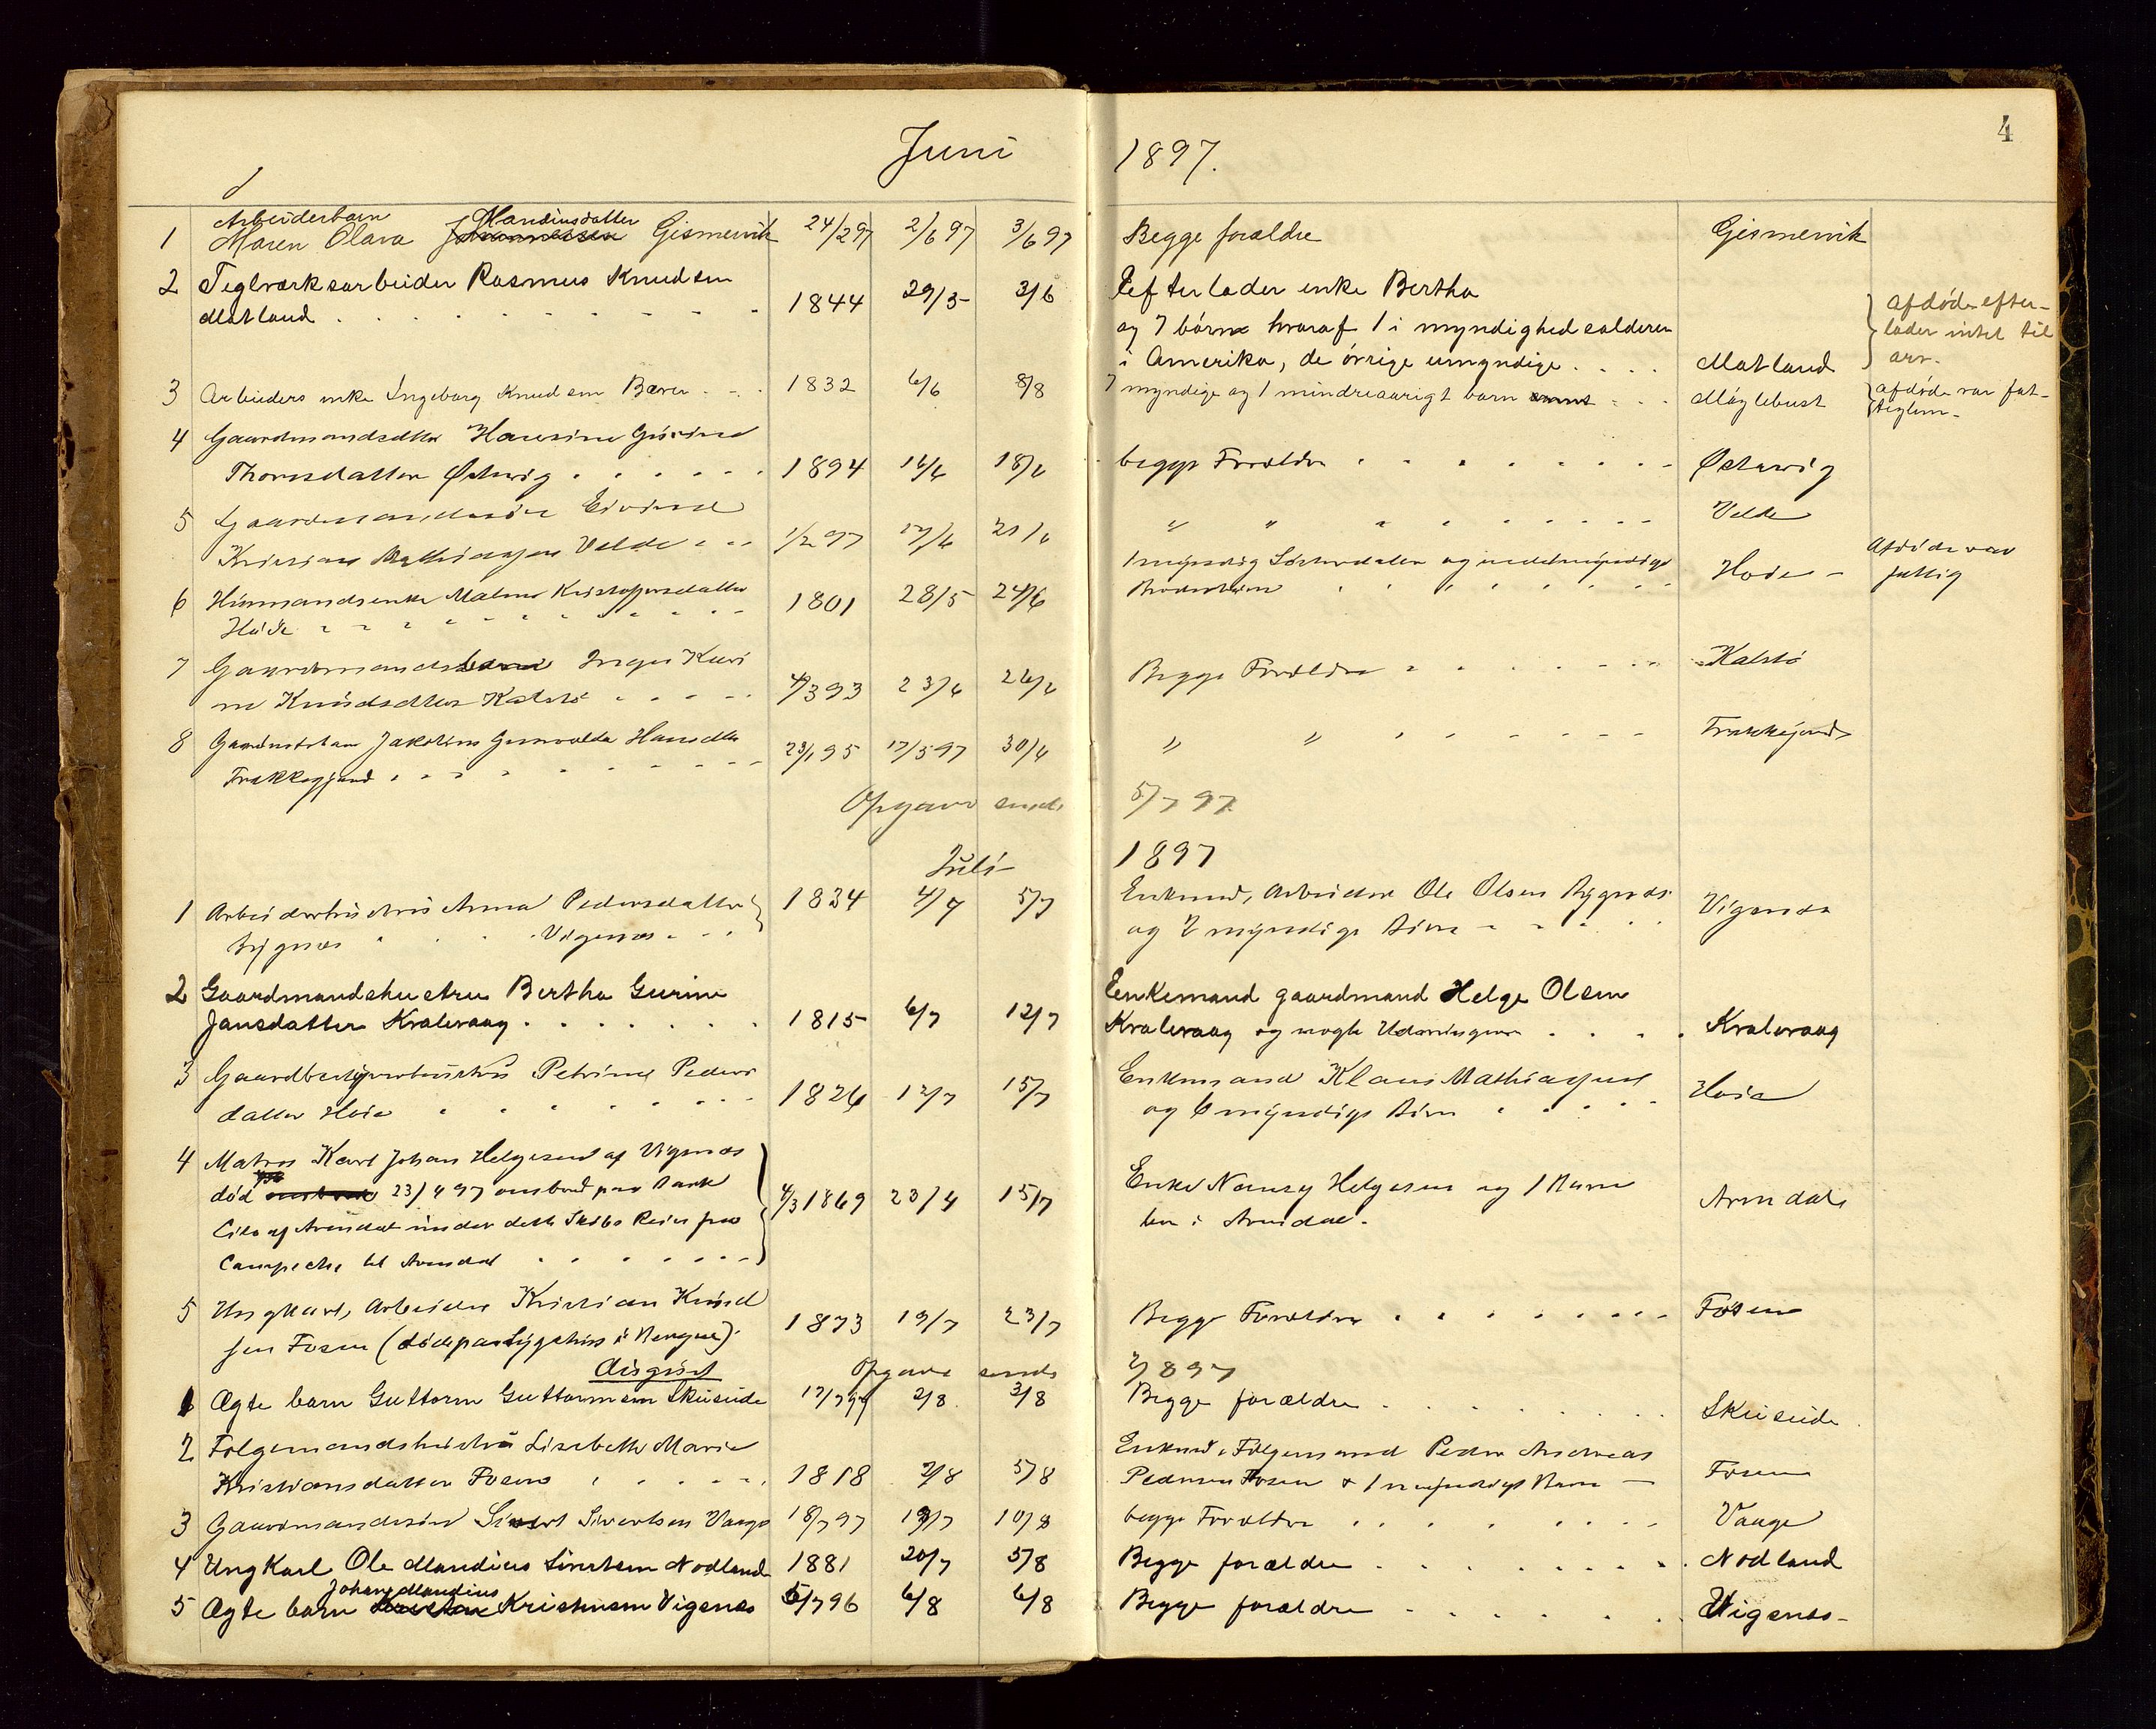 4
Juni 1897.
d
Arbeiderbarn Mandiusdatter
1 Maren Olava Johannessen Gismervik 24/297 2/697 3/697 Begge forældre Gismervik
2 Teglværksarbeider Rasmus Knudsen
Matland 1844 29/5 3/6 Efterlader enke Bertha
og 7 børn hvoraf 1 i myndighedsalderen
i Amerika, de øvrige umyndige Matland
afdøde efter-
lader intet til
arv.
3 Arbeiders enke Ingeborg Knudsen Bævre 1832 6/6 8/8 7 myndige og 1 mindreaarigt barn Møglebust
afdøde var fat-
tiglem-
4 Gaardmandsdtter Hansine Gurine
Thomsdatter Østervig 1894 16/6 18/6 begge Forældre Østervig
5 Gaardmandssøn Eivind
Kristian Mathiassen Velde 1/297 17/6 21/6 " " Velde
6 Husmandsenke Malene Kristoffersdatter
Høie 1801 28/5 24/6 1 myndig Søsterdatter og umyndige
Broderbørn Hoie -
Afdøde var
fattig
7 Gaardmandsbarn Inger Kari
ne Knudsdtter Kalstø 4/393 23/6 26/6 Begge Forældre Kalstø
8 Jakobine Gunvalda Hansdtr
Frakkagjerd 23/195 17/597 30/6 " " Frakkagjerd
Opgave sendt 5/797.
Juli 1897
1 Arbeiderhustru Anna Pedersdatter
Rygnes Vigsnes 1834 4/7 5/7 Enkemd, Arbeider Ole Olsen Rygnes
og 2 myndige Børn Vigsnes
2 Gaardmandshustru Bertha Gurine
Jansdatter Kralevaag 1815 6/7 12/7 Enkemand gaardmand Helge Olsen
Kralevaag og nogle Udarvinger Kralevaag
3 Gaardbrugerhustru Petrine Peders
datter Hoie 1826 12/7 15/7 Enkemand Klaus Mathiassen
og 6 myndige Børn Hoie
4 Matros Karl Johan Helgesen af Vigsnes
død 23/497 ombord paa Bark
Cito af Arendal under dette Skibs Reise fra
Campeche til Arendal 4/31869 23/4 15/7 Enke Nancy Helgesen og 1 Barn
bor i Arendal. Arendal
5 Ungkarl, Arbeider Kristian Knud
sen Fosen (døde paa Sygehus i Bergen). 1873 19/7 23/7 Begge Forældre Fosen
August Opgave sendt 2/897
1 Ægte barn Guttorm Guttormsen Skeiseide 17/797 2/8 3/8 Begge forældre Skeiseide
2 Folgemandshustru Lisebeth Marie
Kristiansdatter Fosen 1818 2/8 5/8 Enkemd. Folgemand Peder Andreas
Pedersen Fosen & 1 myndigt Barn Fosen
3 Gaardmandssøn Sivert Sivertsen Vaage 18/797 19/7 10/8 begge Forældre Vaage
4 Ungkarl Ole Mandius Sivertsen Nodland 1881 20/7 5/8 Begge forældre Nodland
Johan Mandius
5 Ægte barn Kristensen Vigsnes 5/796 6/8 6/8 Begge forældre Vigsnes-